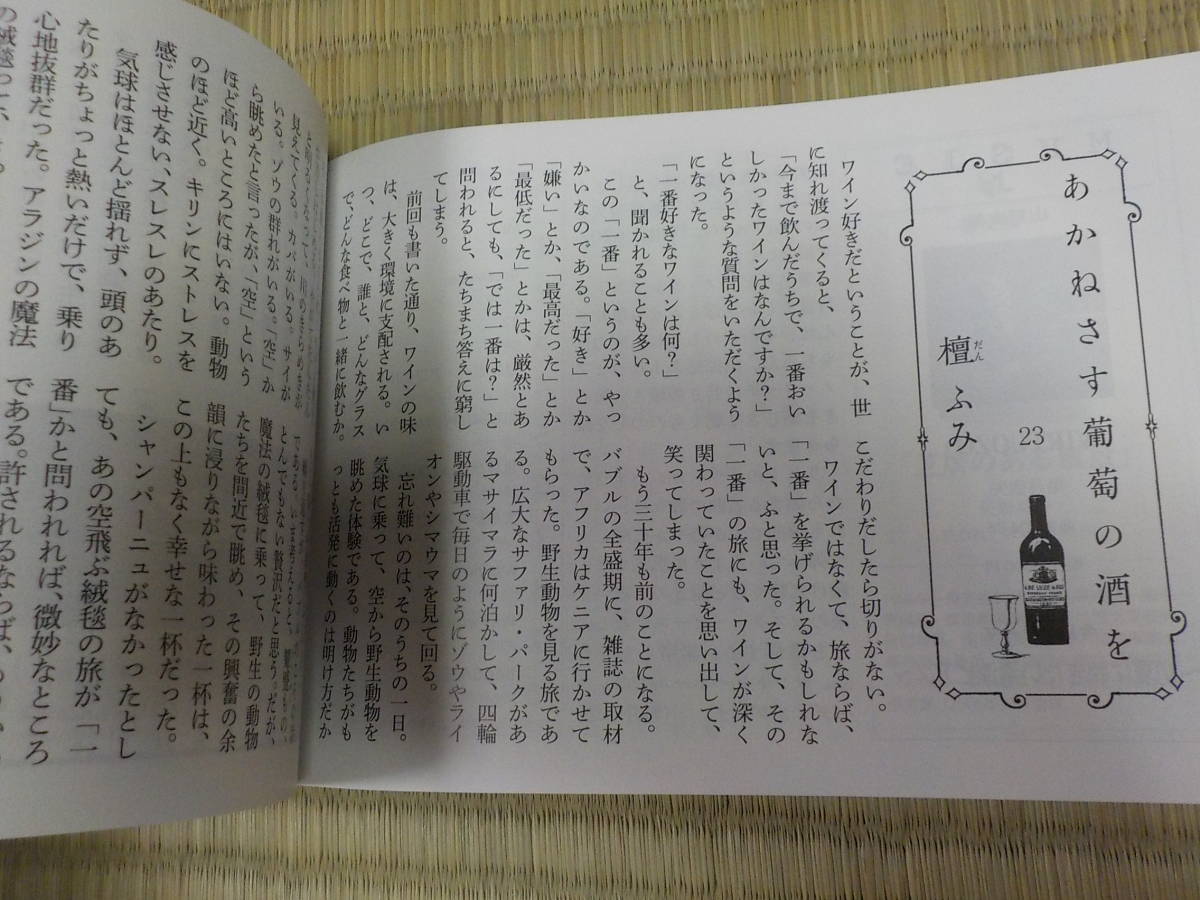 あかねさす葡萄の酒を
23
檀ふみ
だん
ワイン好きだということが、世
に知れ渡ってくると、
「今まで飲んだうちで、一番おい
しかったワインはなんですか?」
というような質問をいただくよう
になった。
「一番好きなワインは何?」
と、聞かれることも多い。
この「一番」というのが、やっ
かいなのである。「好き」とか
「嫌い」とか、「最高だった」とか
「最低だった」とかは、厳然とあ
るにしても、「では一番は?」と
問われると、たちまち答えに窮し
てしまう。
前回も書いた通り、ワインの味
は、大きく環境に支配される。い
つ、どこで、誰と、どんなグラス
で、どんな食べ物と一緒に飲むか。
こだわりだしたら切りがない。
ワインではなくて、旅ならば、
「一番」を挙げられるかもしれな
いと、ふと思った。そして、その
「一番」の旅にも、ワインが深く
関わっていたことを思い出して、
笑ってしまった。
もう三十年も前のことになる。
バブルの全盛期に、雑誌の取材
で、アフリカはケニアに行かせて
もらった。野生動物を見る旅であ
る。広大なサファリ・パークがあ
るマサイマラに何泊かして、四輪
駆動車で毎日のようにゾウやライ
オンやシマウマを見て回る。
忘れ難いのは、そのうちの一日。
気球に乗って、空から野生動物を
眺めた体験である。動物たちがも
っとも活発に動くのは明け方だか
見えてくる。カバがいる。サイが
いる。ゾウの群れがいる。「空」か
ら眺めたと言ったが、「空」という
ほど高いところにはいない。動物
のほど近く。キリンにストレスを
感じさせない、スレスレのあたり。
気球はほとんど揺れず、頭のあ
たりがちょっと熱いだけで、乗り
心地抜群だった。アラジンの魔法
とんでもない贅沢だと思う。だが、
魔法の絨毯に乗って、野生の動物
たちを間近で眺め、その興奮の余
韻に浸りながら味わった一杯は、
この上もなく幸せな一杯だった。
シャンパーニュがなかったとし
ても、あの空飛ぶ絨毯の旅が「一
番」かと問われれば、微妙なところ
である。許されるならば、